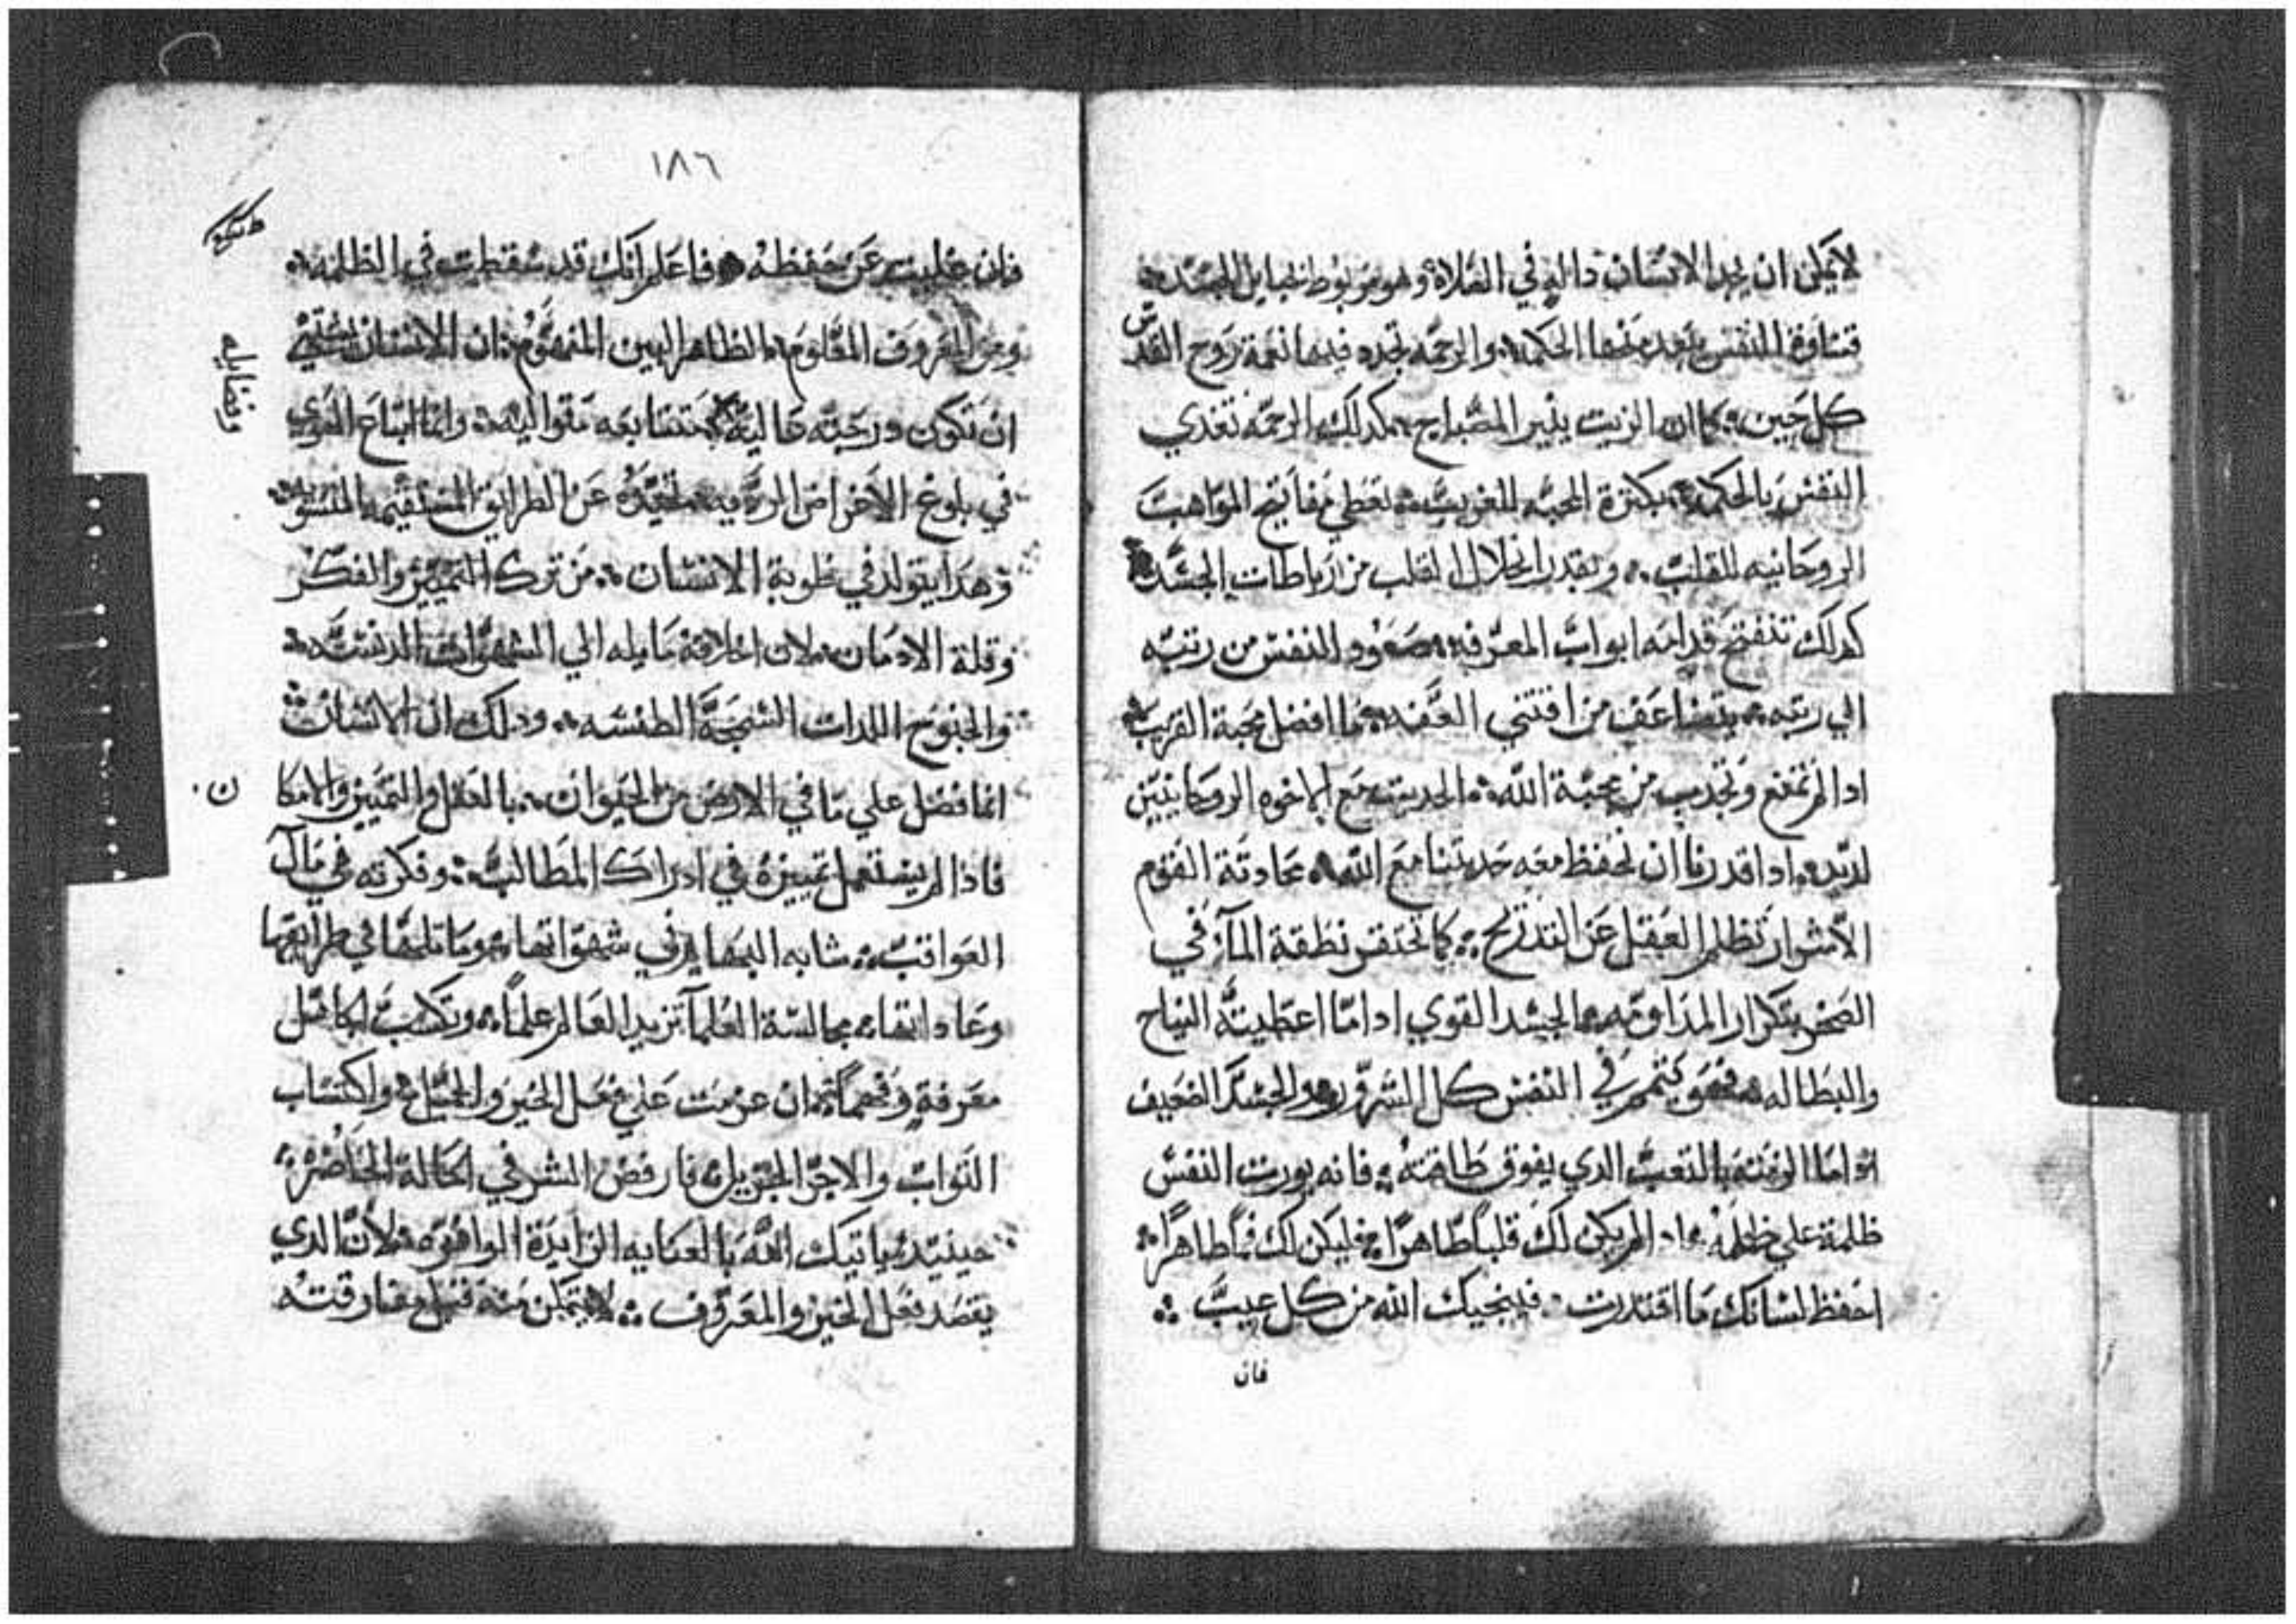 لا يمكن ان يجد الانسان دالة في الصلاة وهو مربوط بحبايل الجسد
قساوة النفس يبعد منها الحكمه والرحمه تجده فيها نعمة روح القدس
كل حين كما ان الزيت ينير المصباح كدلك الرحمه تغدي
النفس بالحكمه بكثرة المحبه للغريب تعطي مفاتيح المواهب
الروحانيه للقلب وبقدر انحلال القلب من رباطات الجسد
كدلك تنفتح قدامه ابواب المعرفه صعود النفس من رتبه
الي رتبه يتضاعف من اقتني العفه ما افضل محبة القريب
ادا لم تمنع وتجدب من محبة الله الحديث مع الاخوه الروحانيين
لديد ادا قدرنا ان نحفظ معه حديثنا مع الله محادثة القوم
الاشرار تظلم العقل عن التدرج كما تختفي نطقة المآء في
الصخر بتكرار المداومه الجسد القوي ادا ما اعطيته النياح
والبطاله فهو يتمر في النفس كل الشرور والجسد الضعيف
ادا ما الزمته بالتعب الدي يفوق طاقته فانه يورت النفس
ظلمة علي ظلمه ادا لم يكن لك قلباً طاهراً فليكن لك فماً طاهراً
احفظ لسانك ما اقتدرت فينجيك الله من كل عيب
فان
١٨٦
فان غلبت عن حفظه فاعلم انك قد سقطت في الظلمه
ومن المعروف المعلوم الظاهر البين المفهوم ان الانسان يشتهي
ان تكون درجته عاليه متتابعه متواليه وانما اتباع الهوي
في بلوغ الاغراض الرديه مبعده عن الطرايق المستقيمه
وهدا يتولد في طوية الانسان من ترك التمييز والفكر
وقلة الادمان لان اخلاقه مايله الي الشهوات الدنسه
والجنوح اللدات السمجه الطنسه ودلك ان الانسان
انما فضل علي ما في الارض من الحيوان بالعقل والتمييز والامكا
ن
فاذا لم يستعمل تمييزه في ادراك المطالب وفكرته في مآل
العواقب شابه البهايم في شهواتها وماتلها في طرايقها
وعادانها مجالسة العلمآ تزيد العالم علماً وتكسب الجاهل
معرفة وفهماً ان عزمت علي فعل الخير والجميل واكتساب
التواب والاجر الجزيل فارفض الشر في الحالة الحاضره
حينيد ياتيك الله بالعنايه الزايدة الوافره لان الدي
يقصد فعل الخير والمعروف لا يتمكن منه قبل مفارقته
وفضايله